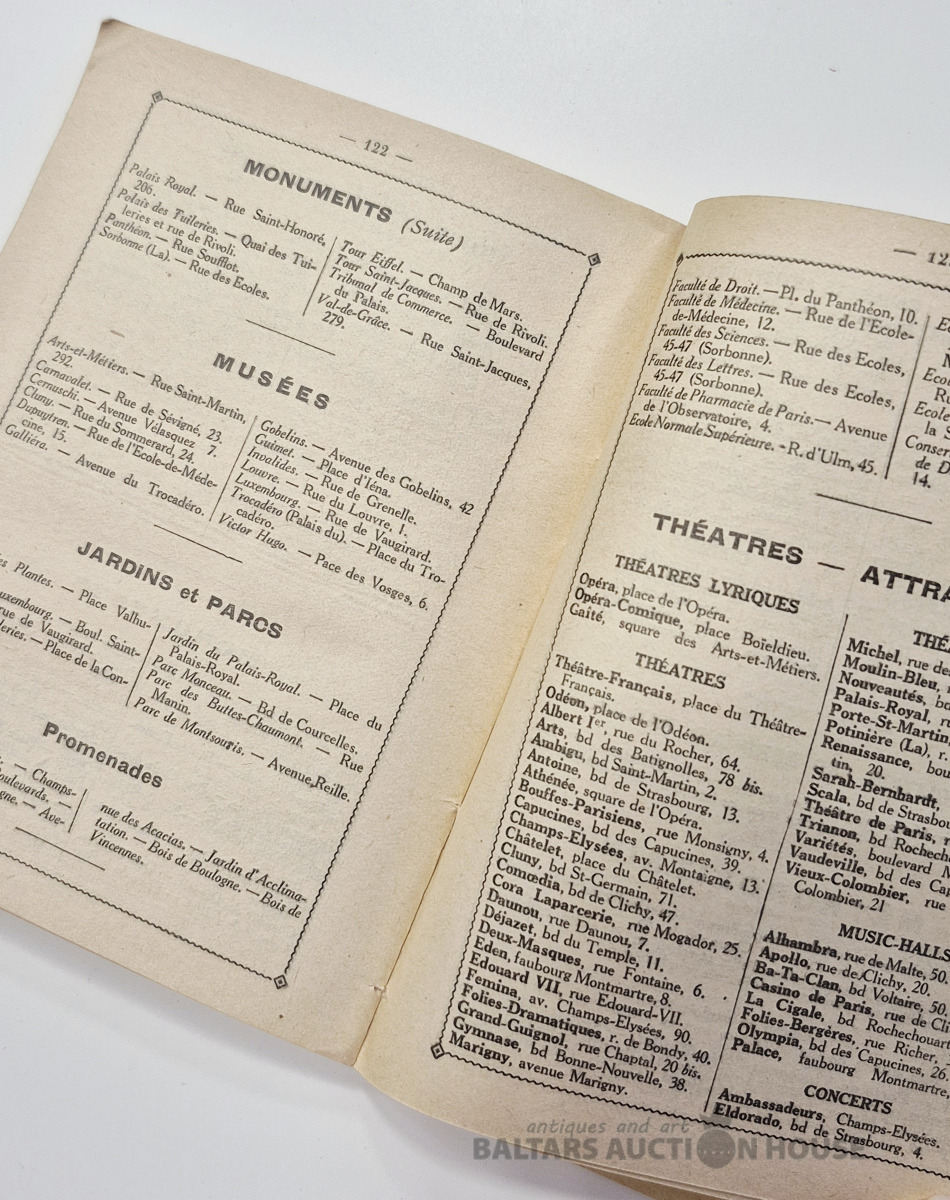 — 122 —
MONUMENTS (Suite)
Palais Royal. — Rue Saint-Honoré,
206.
Palais des Tuileries. — Quai des Tui-
leries et rue de Rivoli.
Panthéon. — Rue Soufflot.
Sorbonne (La). — Rue des Ecoles.
Tour Eiffel. — Champ de Mars.
Tour Saint-Jacques. — Rue de Rivoli.
Tribunal de Commerce. — Boulevard
du Palais.
Val-de-Grâce. — Rue Saint-Jacques,
279.
MUSÉES
Arts-et-Métiers. — Rue Saint-Martin,
292.
Carnavalet. — Rue de Sévigné, 23.
Cernuschi. — Avenue Vélasquez 7.
Cluny. — Rue du Sommerard, 24.
Dupuytren. — Rue de l'Ecole-de-Méde-
cine, 15.
Galliéra. — Avenue du Trocadéro.
Gobelins. — Avenue des Gobelins, 42
Guimet. — Place d'Iéna.
Invalides. — Rue de Grenelle.
Louvre. — Rue du Louvre, 1.
Luxembourg. — Rue de Vaugirard.
Trocadéro (Palais du). — Place du Tro-
cadéro.
Victor Hugo. — Pace des Vosges, 6.
JARDINS et PARCS
Plantes. — Place Valhu-
uxembourg. — Boul. Saint-
rue de Vaugirard.
leries. — Place de la Con-
Jardin du Palais-Royal. — Place du
Palais-Royal.
Parc Monceau. — Bd de Courcelles.
Parc des Buttes-Chaumont. — Rue
Manin.
Parc de Montsouris. — Avenue Reille.
Promenades
— Champs-
oulevards. —
gne. — Ave-
nue des Acacias. — Jardin d'Acclima-
tation. — Bois de Boulogne. — Bois de
Vincennes.
— 12
Faculté de Droit. — Pl. du Panthéon, 10.
Faculté de Médecine. — Rue de l'Ecole-
de-Médecine, 12.
Faculté des Sciences. — Rue des Ecoles,
45-47 (Sorbonne).
Faculté des Lettres. — Rue des Ecoles,
45-47 (Sorbonne).
Faculté de Pharmacie de Paris. — Avenue
de l'Observatoire, 4.
Ecole Normale Supérieure. - R. d'Ulm, 45.
Eco
Ecole
la S
Conser
de D
14.
THÉATRES — ATTRA
THÉATRES LYRIQUES
Opéra, place de l'Opéra.
Opéra-Comique, place Boïeldieu.
Gaîté, square des Arts-et-Métiers.
THÉATRES
Théâtre-Français, place du Théâtre-
Français.
Odéon, place de l'Odéon.
Albert 1er, rue du Rocher, 64.
Arts, bd des Batignolles, 78 bis.
Ambigu, bd Saint-Martin, 2.
Antoine, bd de Strasbourg, 13.
Athénée, square de l'Opéra.
Bouffes-Parisiens, rue Monsigny, 4.
Capucines, bd des Capucines, 39.
Champs-Elysées, av. Montaigne, 13.
Châtelet, place du Châtelet.
Cluny, bd St-Germain, 71.
Comœdia, bd de Clichy, 47.
Cora Laparcerie, rue Mogador, 25.
Daunou, rue Daunou, 7.
Déjazet, bd du Temple, 11.
Deux-Masques, rue Fontaine, 6.
Eden, faubourg Montmartre, 8.
Edouard VII, rue Edouard-VII.
Femina, av. Champs-Elysées, 90.
Folies-Dramatiques, r. de Bondy, 40.
Grand-Guignol, rue Chaptal, 20 bis.
Gymnase, bd Bonne-Nouvelle, 38.
Marigny, avenue Marigny.
THÉ
Michel, rue des
Moulin-Bleu,
Nouveautés, bd
Palais-Royal, ru
Porte-St-Martin,
Potinière (La), r.
Renaissance, bou
tin, 20.
Sarah-Bernhardt,
Scala, bd de Strasbou
Théâtre de Paris, r
Trianon, bd Rochech
Variétés, boulevard M
Vaudeville, bd des Cap
Vieux-Colombier, rue
Colombier, 21
MUSIC-HALLS
Alhambra, rue de Malte, 50.
Apollo, rue de Clichy, 20.
Ba-Ta-Clan, bd Voltaire, 50.
Casino de Paris, rue de Cli
La Cigale, bd Rochechouart
Folies-Bergères, rue Richer,
Olympia, bd des Capucines, 26.
Palace, faubourg Montmartre,
CONCERTS
Ambassadeurs, Champs-Elysées.
Eldorado, bd de Strasbourg, 4.
antiques and art
BALTARS AUCTION HOUSE